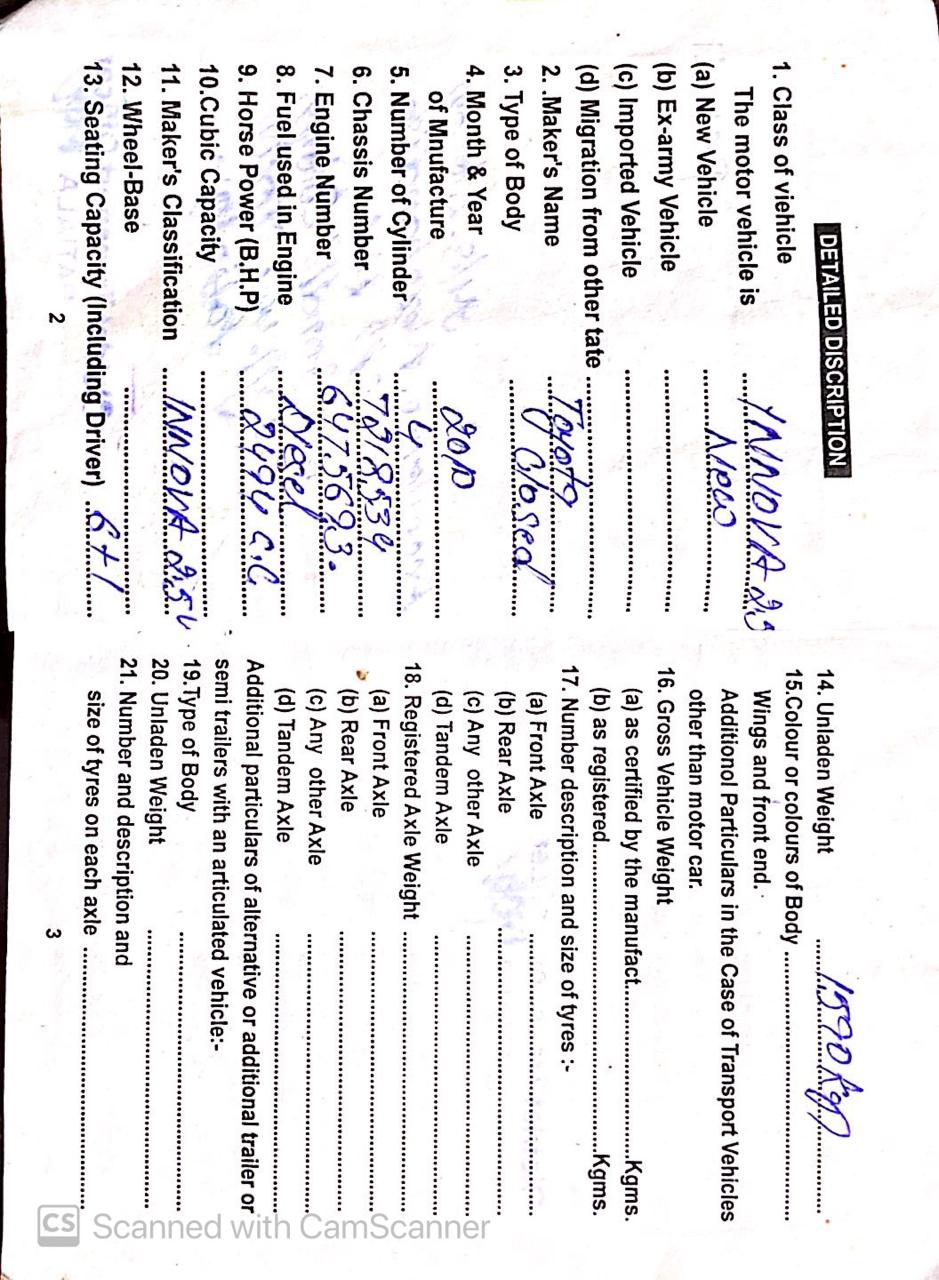 DETAILED DISCRIPTION
1. Class of viehicle
The motor vehicle is ......INNOVA 2.5
(a) New Vehicle ......New......
(b) Ex-army Vehicle ......
(c) Imported Vehicle ......
(d) Migration from other tate ......
2. .Maker's Name ......Toyota......
3. Type of Body ......Closed......
4. Month & Year
of Mnufacture ......2010......
5. Number of Cylinder ......4......
6. Chassis Number ......
7. Engine Number ......6475693.
8. Fuel used in Engine ......Diesel......
9. Horse Power (B.H.P) ......2494 C.C
10.Cubic Capacity ......
11. Maker's Classification ......INNOVA 2.5
12. Wheel-Base ......
13. Seating Capacity (Including Driver) ......6+1......
2
14. Unladen Weight ......1590 kgs......
15.Colour or colours of Body ......
Wings and front end.
Additionol Particulars in the Case of Transport Vehicles
other than motor car.
16. Gross Vehicle Weight
(a) as certified by the manufact......Kgms.
(b) as registered......Kgms.
17. Number description and size of tyres :-
(a) Front Axle ......
(b) Rear Axle ......
(c) Any other Axle ......
(d) Tandem Axle ......
18. Registered Axle Weight ......
(a) Front Axle ......
(b) Rear Axle ......
(c) Any other Axle ......
(d) Tandem Axle ......
Additional particulars of alternative or additional trailer or
semi trailers with an articulated vehicle:-
19.Type of Body ......
20. Unladen Weight ......
21. Number and description and
size of tyres on each axle ......
3
CS Scanned with CamScanner